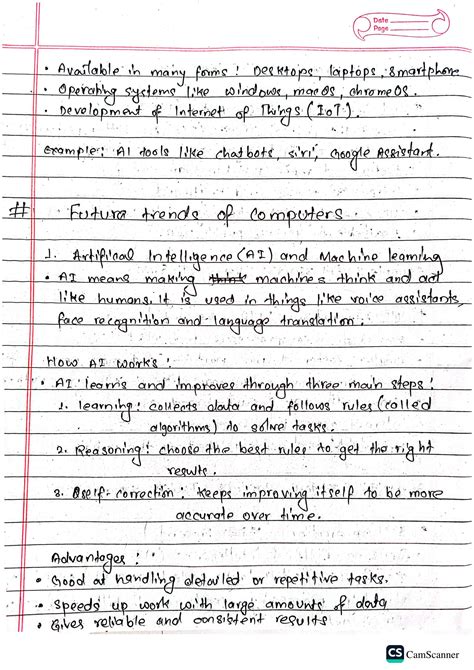 Date
Page
• Available in many forms : Desktops, laptops, smartphone
• Operating systems like windows, macos, chromeOS.
• Development of Internet of Things (IoT).
Example: AI tools like chatbots, siri, Google Assistant.
# Future trends of computers
1. Artifical Intelligence (AI) and Machine learning
• AI means making think machines think and act
like humans. it is used in things like voice assistants,
face recognition and language translation.
How AI works :
• AI learns and improves through three main steps :
1. learning : collects data and follows rules (called
algorithms) to solve tasks.
2. Reasoning : choose the best rules to get the right
results.
3. self-correction : keeps improving itself to be more
accurate over time.
Advantages :
• Good at handling detailed or repetitive tasks.
• speeds up work with large amounts of data
• Gives reliable and consistent results
CS CamScanner